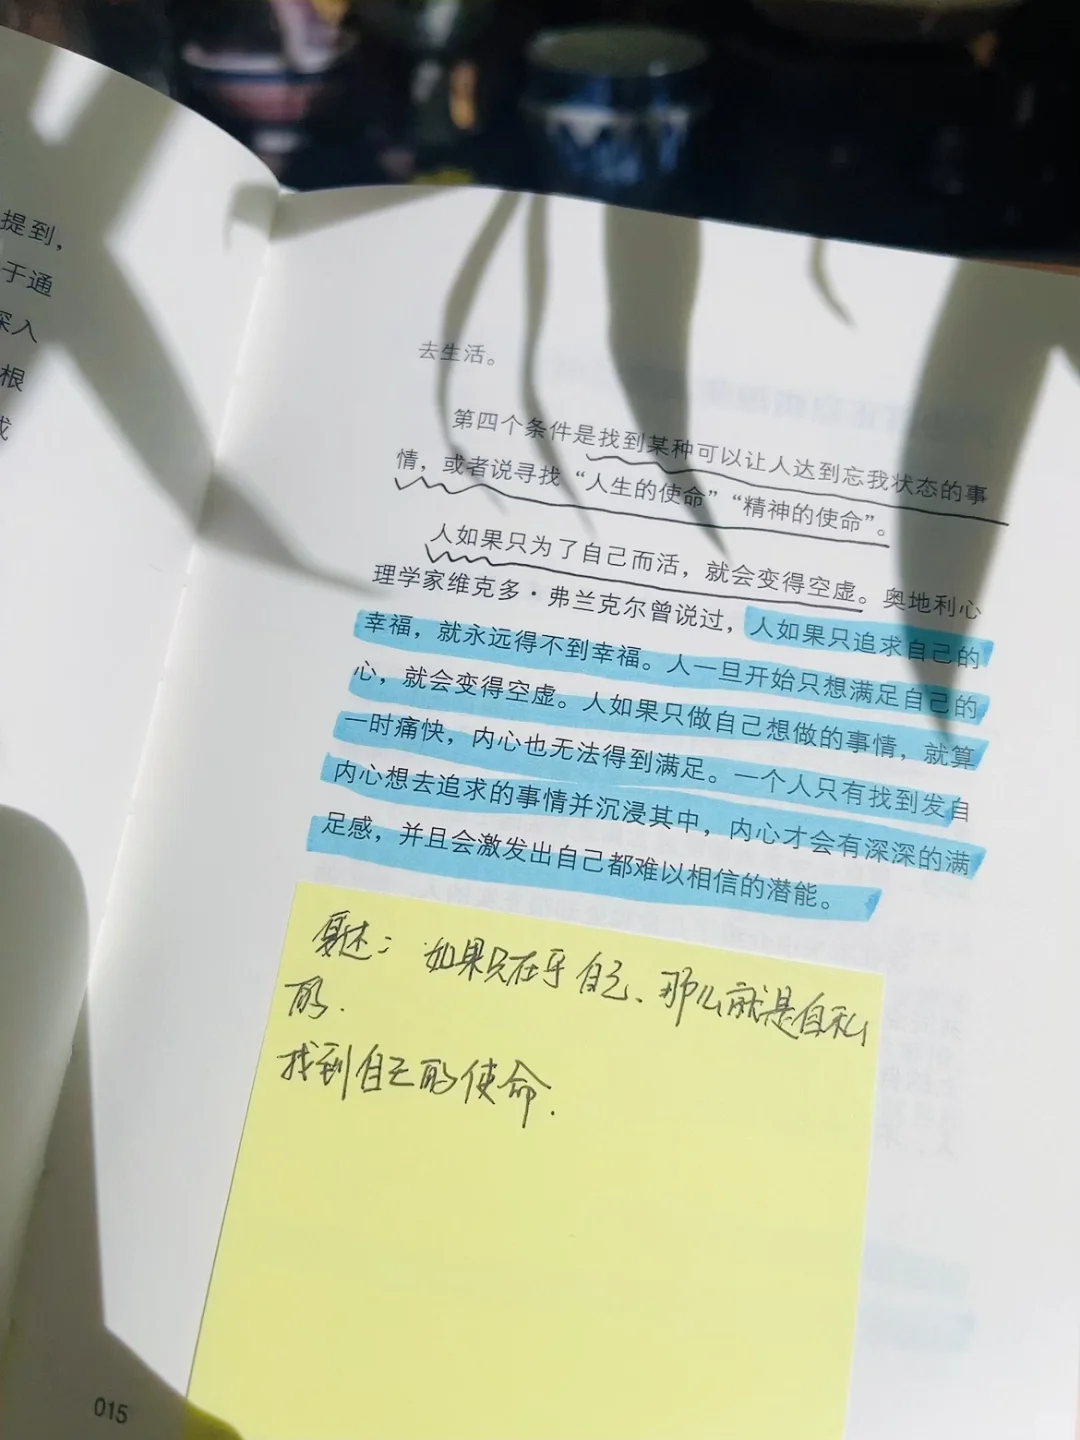 提到，
于通
深入
根
成
015
去生活。
第四个条件是找到某种可以让人达到忘我状态的事
情，或者说寻找“人生的使命”“精神的使命”。
人如果只为了自己而活，就会变得空虚。奥地利心
理学家维克多·弗兰克尔曾说过，人如果只追求自己的
幸福，就永远得不到幸福。人一旦开始只想满足自己的
心，就会变得空虚。人如果只做自己想做的事情，就算
一时痛快，内心也无法得到满足。一个人只有找到发自
内心想去追求的事情并沉浸其中，内心才会有深深的满
足感，并且会激发出自己都难以相信的潜能。
复述：如果只在乎自己、那么就是自私
的.
找到自己的使命.